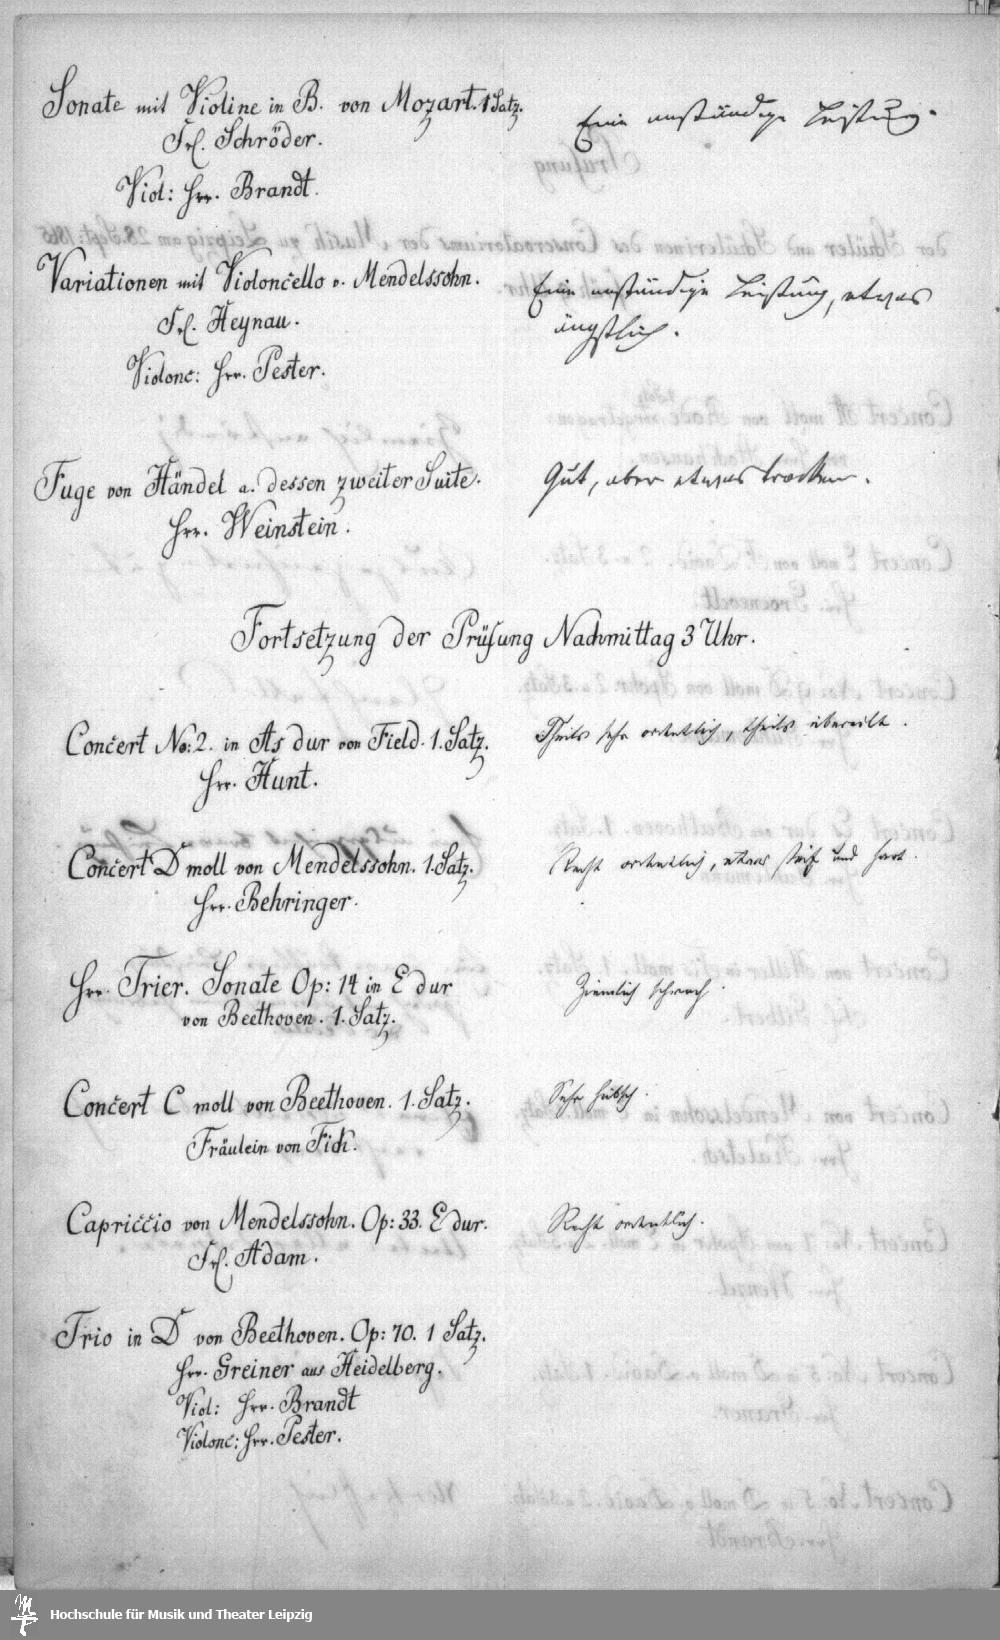 Sonate mit Violine in B. von Mozart. 1 Satz.
Eine anständige Leistung.
Frl. Schröder.
Viol: Hrr. Brandt.
Variationen mit Violoncello v. Mendelssohn.
Eine anständige Leistung, etwas
ängstlich.
Frl. Heynau.
Violonc: Hrr. Pester.
Fuge von Händel a. dessen zweiter Suite.
Gut, aber etwas trocken.
Hrr. Weinstein.
Fortsetzung der Prüfung Nachmittag 3 Uhr.
Concert No: 2. in As dur von Field. 1. Satz.
Theils sehr ordentlich, theils übereilt.
Hrr. Hunt.
Concert D moll von Mendelssohn. 1. Satz.
Recht ordentlich, etwas steif und hart.
Hrr. Behringer.
Hrr. Trier. Sonate Op: 14 in E dur
von Beethoven. 1. Satz.
Ziemlich schwach.
Concert C moll von Beethoven. 1. Satz.
Sehr hübsch.
Fräulein von Fich.
Capriccio von Mendelssohn. Op: 33. E dur.
Recht ordentlich.
Frl. Adam.
Trio in D von Beethoven. Op: 70. 1 Satz.
Hrr. Greiner aus Heidelberg.
Viol: Hrr. Brandt
Violonc: Hrr. Pester.
Hochschule für Musik und Theater Leipzig